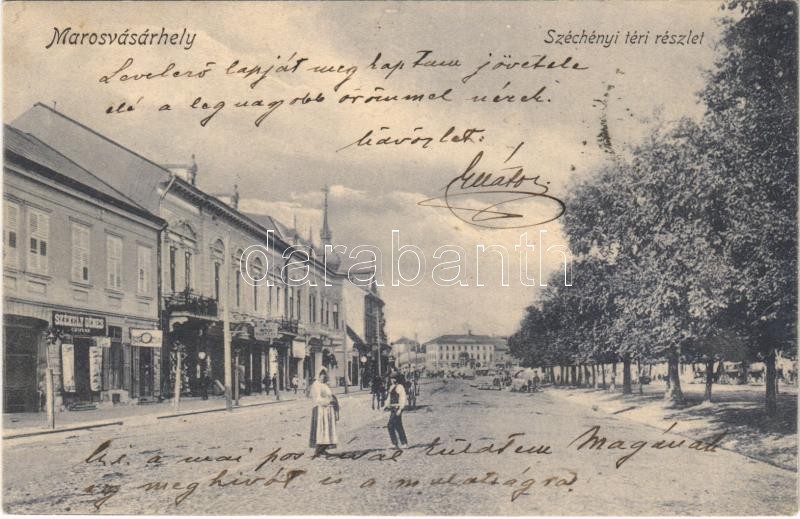 Marosvásárhely
Széchényi téri részlet
Levelező lapját meg kaptam jövetele
elé a legnagyobb örömmel nézek.
Üdvözlet:
darabanth.com
a mai postával küldtem Magának
egy meghivót is a mulatságra.